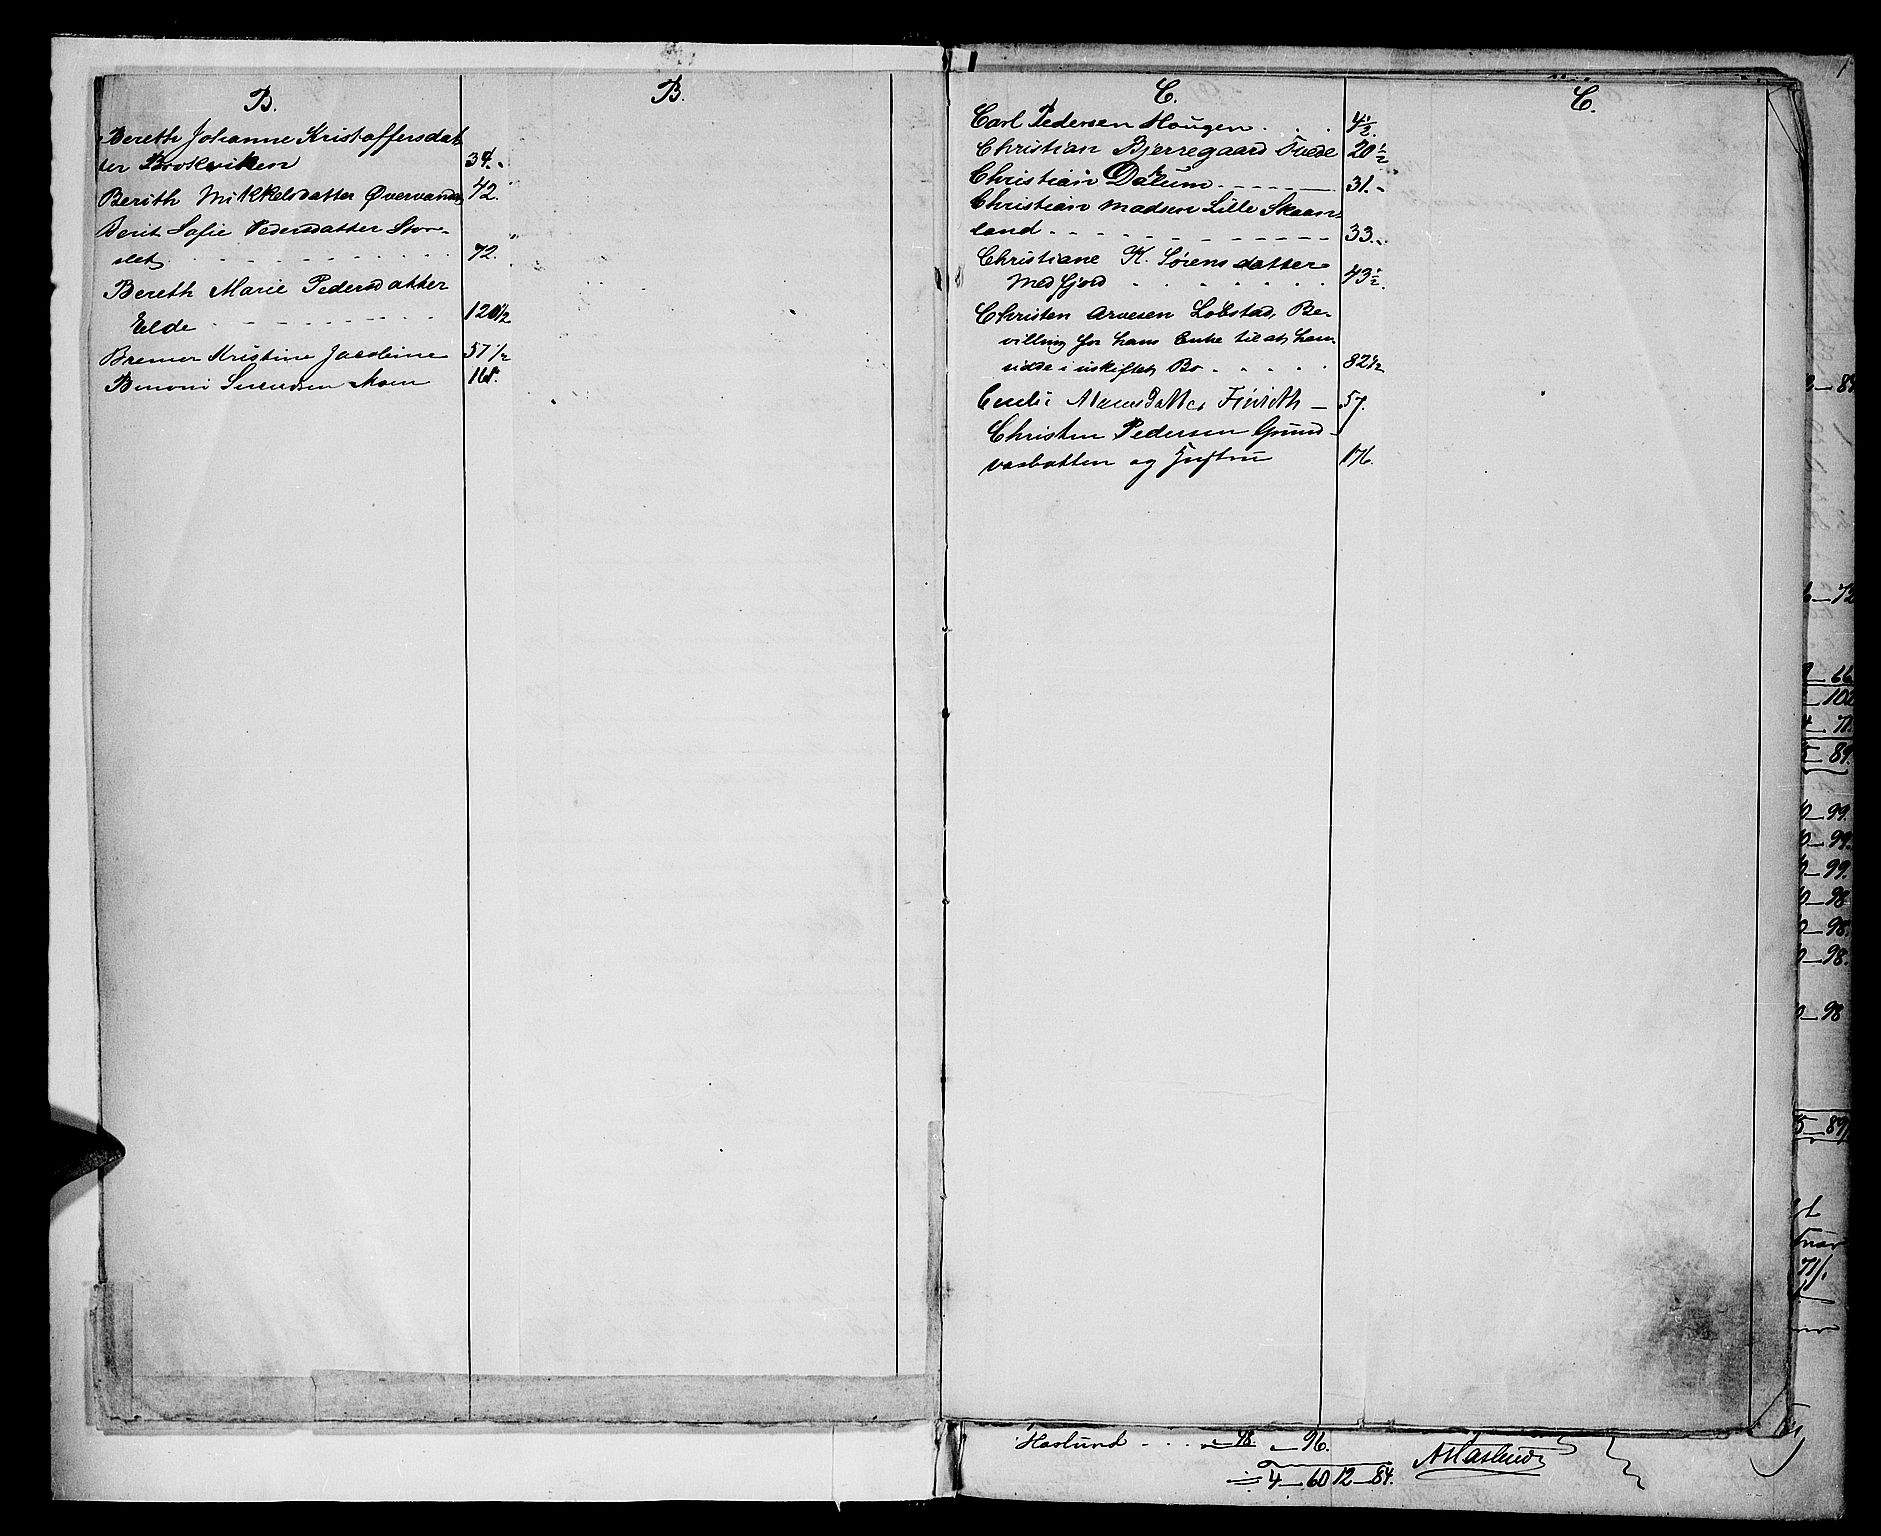 B.
Bereth Johanne Kristoffersdat
ter Brokviken 34.
Berith Mikkelsdatter Øvervand 42.
Berit Sofie Pedersdatter Stor-
slet 72.
Bereth Marie Pedersdatter
Elde 120 1/2
Bremer Kristine Jacobine 57 1/2
Benoni Sørensen Moen 168.
B.
C.
Carl Pedersen Hougen 4 1/2.
Christian Bjerregaard Tuede 20 1/2
Christian Dalum 31.
Christian Madsen Lille Skaan-
land 33.
Christiane K. Sørensdatter
Medfjord 43 1/2.
Christen Arvesen Løbstad, Be-
villing for hans Enke til at hen-
sidde i uskiftet Bo 82 1/2
57.
Christen Pedersen Grund-
vasbotten og Hustru 176.
C.
1
89
72
66
102
71
5 - 89
0 - 99.
0 - 99.
0 - 99.
0 - 98
0 - 98.
0 - 98.
0 - 98
5 - 89
71/.
Haslund 48 - 96.
4 - 60 12 - 84.
A Haslund